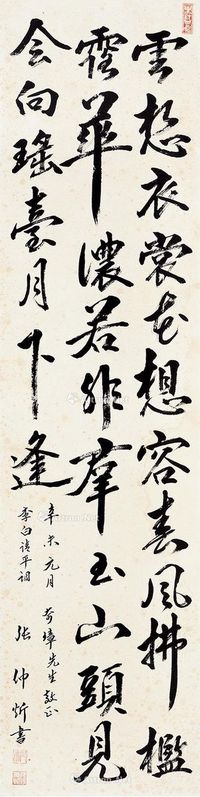 雲想衣裳花想容春風拂檻
露華濃若非羣玉山頭見
会向瑤臺月下逢
辛未元月 先生教正
李白清平詞
张仲炘書